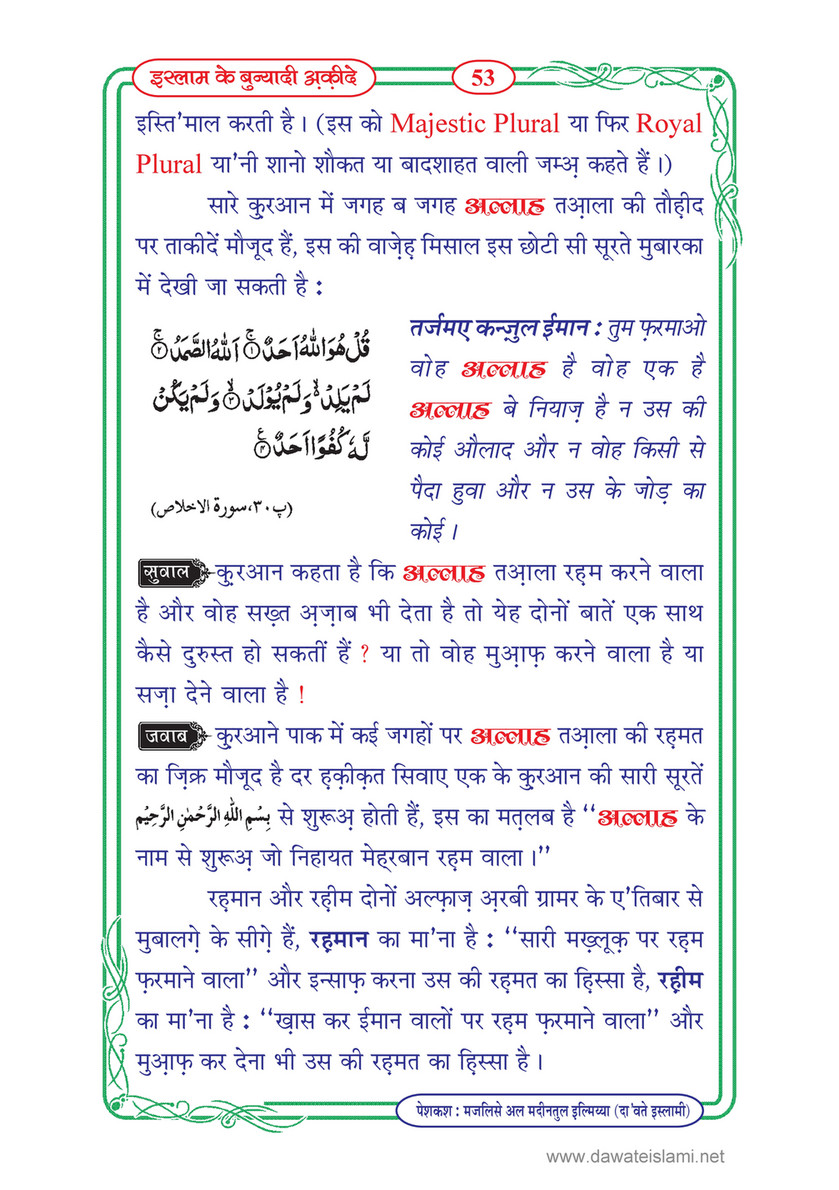 इस्लाम के बुन्यादी अ़क़ीदे
53
इस्ति'माल करती है । (इस को Majestic Plural या फिर Royal
Plural या'नी शानो शौकत या बादशाहत वाली जम्अ़ कहते हैं ।)
सारे कु़रआन में जगह ब जगह अल्लाह तआ़ला की तौह़ीद
पर ताकीदें मौजूद हैं, इस की वाज़ेह़ मिसाल इस छोटी सी सूरते मुबारका
में देखी जा सकती है :
قُلْ هُوَ اللّٰهُ اَحَدٌ ۚ﴿۱﴾ اَللّٰهُ الصَّمَدُ ۚ﴿۲﴾
لَمْ یَلِدْ ۙ۬ وَ لَمْ یُوْلَدْ ۙ﴿۳﴾ وَ لَمْ یَكُنْ
لَّهٗ كُفُوًا اَحَدٌ ﴿۴﴾
(پ۳۰، سورة الاخلاص)
तर्जमए कन्ज़ुल ईमान : तुम फ़रमाओ
वोह अल्लाह है वोह एक है
अल्लाह बे नियाज़ है न उस की
कोई औलाद और न वोह किसी से
पैदा हुवा और न उस के जोड़ का
कोई ।
सुवाल कु़रआन कहता है कि अल्लाह तआ़ला रह़म करने वाला
है और वोह सख़्त अ़ज़ाब भी देता है तो येह दोनों बातें एक साथ
कैसे दुरुस्त हो सकतीं हैं ? या तो वोह मुआ़फ़ करने वाला है या
सज़ा देने वाला है !
जवाब कु़रआने पाक में कई जगहों पर अल्लाह तआ़ला की रह़मत
का ज़िक्र मौजूद है दर ह़क़ीक़त सिवाए एक के कु़रआन की सारी सूरतें
بِسْمِ اللّٰهِ الرَّحْمٰنِ الرَّحِیْمِ से शुरूअ़ होती हैं, इस का मत़लब है ‘‘अल्लाह के
नाम से शुरूअ़ जो निहायत मेह्रबान रह़म वाला ।’’
रह़मान और रह़ीम दोनों अल्फ़ाज़ अ़रबी ग्रामर के ए'तिबार से
मुबालगे़ के सीगे़ हैं, रह़मान का मा'ना है : ‘‘सारी मख़्लूक़ पर रह़म
फ़रमाने वाला’’ और इन्साफ़ करना उस की रह़मत का हि़स्सा है, रह़ीम
का मा'ना है : ‘‘ख़ास कर ईमान वालों पर रह़म फ़रमाने वाला’’ और
मुआ़फ़ कर देना भी उस की रह़मत का हि़स्सा है ।
पेशकश : मजलिसे अल मदीनतुल इल्मिय्या (दा'वते इस्लामी)
www.dawateislami.net